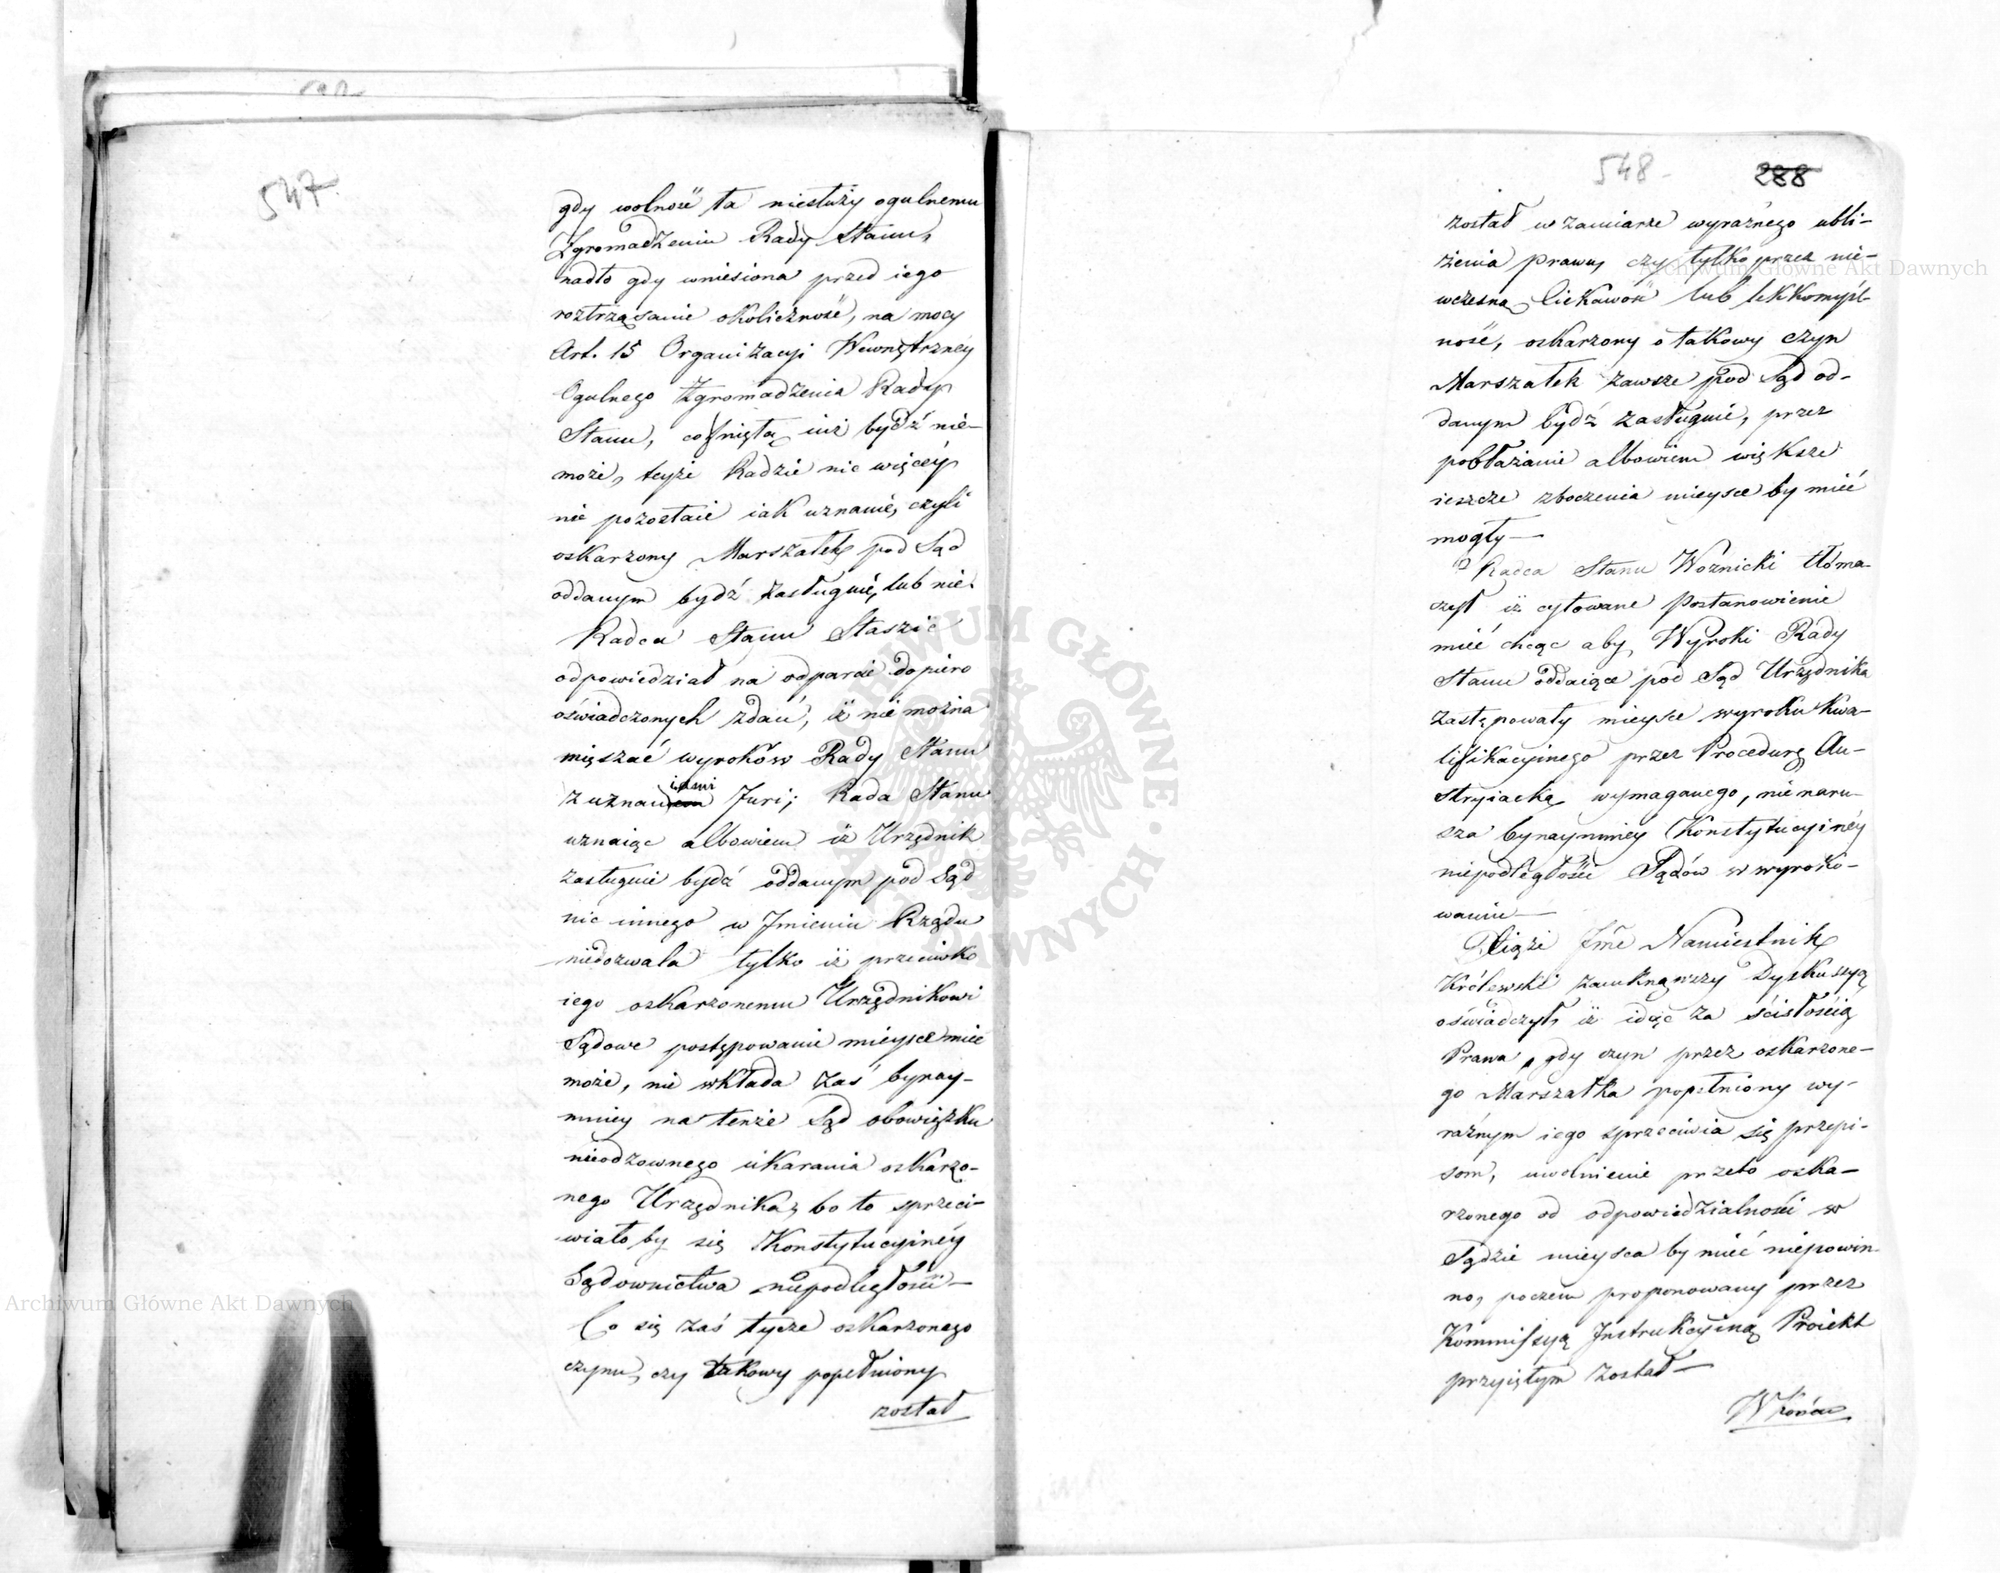 547.
gdy wolność ta niesłuży ogulnemu
Zgromadzeniu Rady Stanu,
nadto gdy wniesiona przed iego
roztrząsanie okoliczność, na mocy
Art. 15 Organizacyi Wewnętrzney
Ogulnego Zgromadzenia Rady
Stanu, cofniętą iuż bydź nie-
może, teyże Radzie nic więcéy
nie pozostaie iak uznanie, czyli
oskarzony Marszałek pod Sąd
oddanym bydź zasługuie, lub nie.
Radca Stanu Staszic
odpowiedział na odparcie dopiero
oświadczonych zdań, iż nie można
mięszać wyroków Rady Stanu
z uznaniami Juri; Rada Stanu
uznaiąc albowiem iż Urzędnik
zasługuie bydź oddanym pod Sąd
nic innego w Imieniu Rządu
niedozwala tylko iż przeciwko
iego oskarzonemu Urzędnikowi
Sądowe postępowanie mieysce mieć
może, nie wkłada zaś bynay-
mniey na tenże Sąd obowiązku
nieodzownego ukarania oskarzo-
nego Urzędnika, bo to sprzeci-
wiało by się Konstytucyinéy
Sądownictwa niepodległości—
Co się zaś tycze oskarzonego
czynu, czy takowy popełniony
został
548.
288
został w zamiarze wyraźnego ubli-
żenia prawu, czy tylko przez nie-
wczesną ciekawość lub lekkomyśl-
ność, oskarzony o takowy czyn
Marszałek zawsze pod Sąd od-
danym bydź zasługuie, przez
pobłażanie albowiem większe
ieszcze zboczenia mieysce by mieć
mogły—
Radca Stanu Woznicki tłóma-
czył iż cytowane Postanowienie
mieć chcąc aby Wyroki Rady
Stanu oddaiące pod Sąd Urzędnika
zastępowały mieysce wyroku kwa-
lifikacyinego przez Procedurę Au-
stryiacką wymaganego, nie naru-
sza bynaymniey Konstytucyinéy
niepodległości Sądów w wyroko-
waniu—
Xiąże Jmć Namiestnik
Królewski zamknąwszy Dyskussyą
oświadczył, iż idąc za ścisłością
Prawa, gdy czyn przez oskarzone-
go Marszałka popełniony wy-
raźnym iego sprzeciwia się przepi-
som, uwolnienie przeto oska-
rzonego od odpowiedzialności w
Sądzie mieysca by mieć niepowin-
no, poczem proponowany przez
Kommissyą Instrukcyiną Proiekt
przyiętym został—
Archiwum Główne Akt Dawnych
Archiwum Główne Akt Dawnych
ARCHIWUM GŁÓWNE AKT DAWNYCH